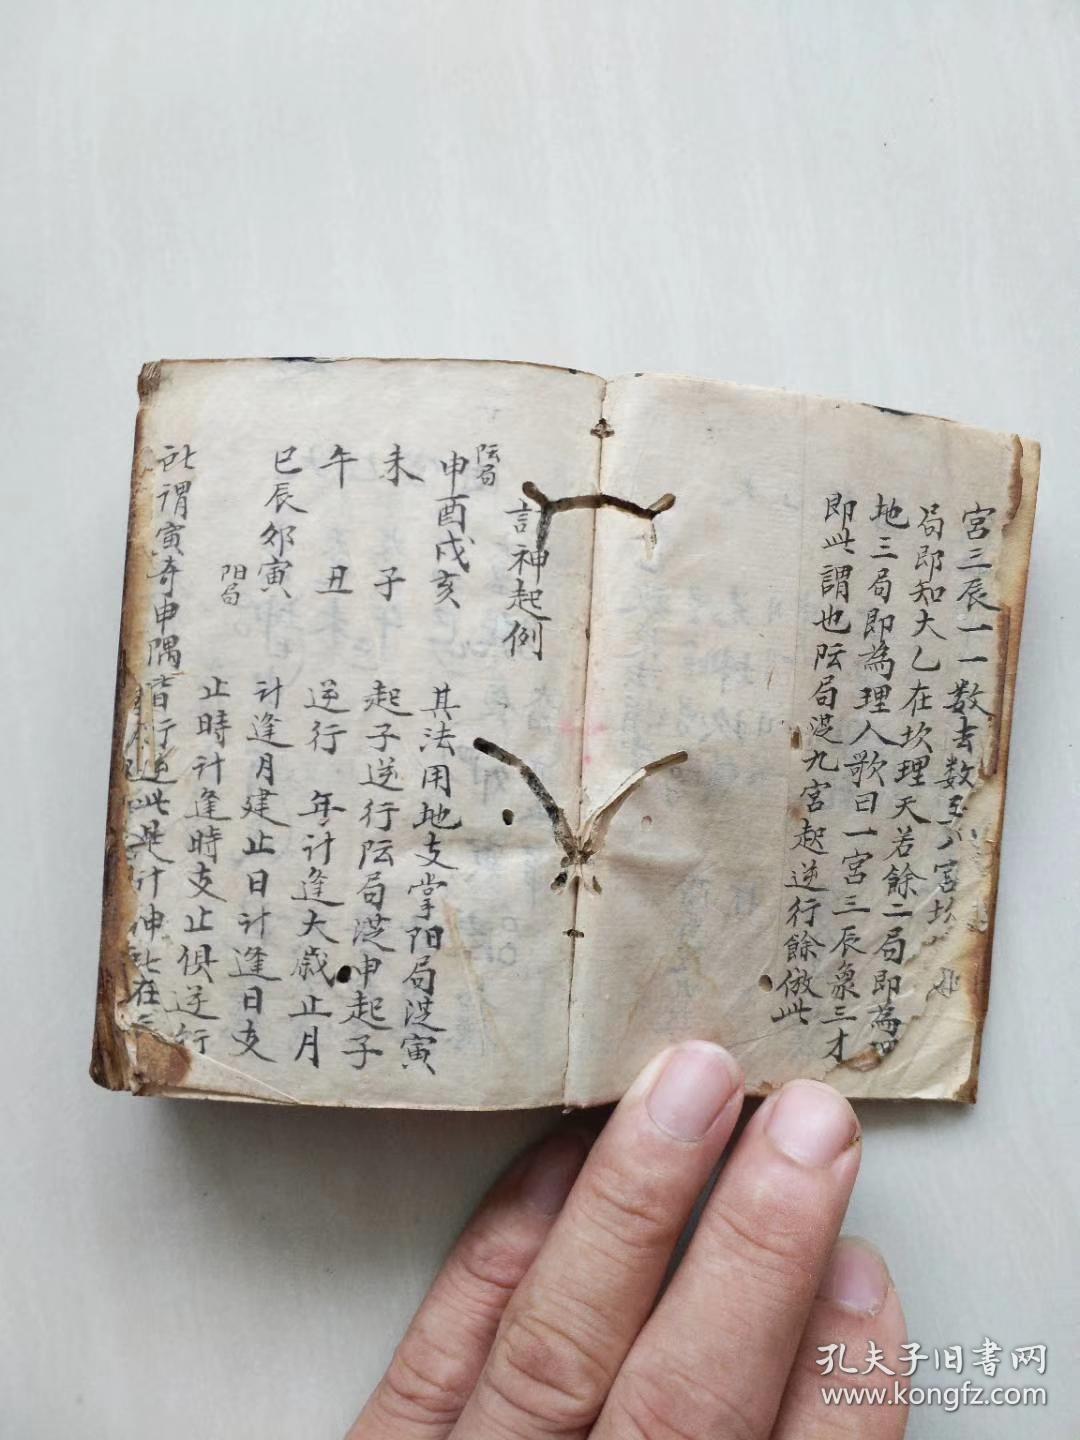 宮三辰一一数去数至八宮坎
局即知大乙在坎理天若餘二局即為理
地三局即為理人歌曰一宮三辰象三才
即此謂也阮局従九宮起逆行餘倣此
計神起例
阮局
申酉戌亥
未 子
午 丑
巳辰卯寅
阳局
其法用地支掌阳局従寅
起子逆行阮局従申起子
逆行 年計逢大歲止月
計逢月建止日計逢日支
止時計逢時支止俱逆行
所謂寅奇申隅皆行逆此是計神所在
孔夫子旧書网
www.kongfz.com